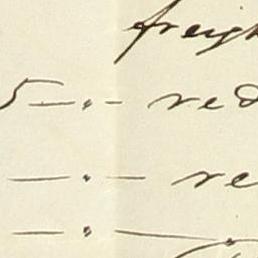 freigh
5 — . — red
— . — re
— . —